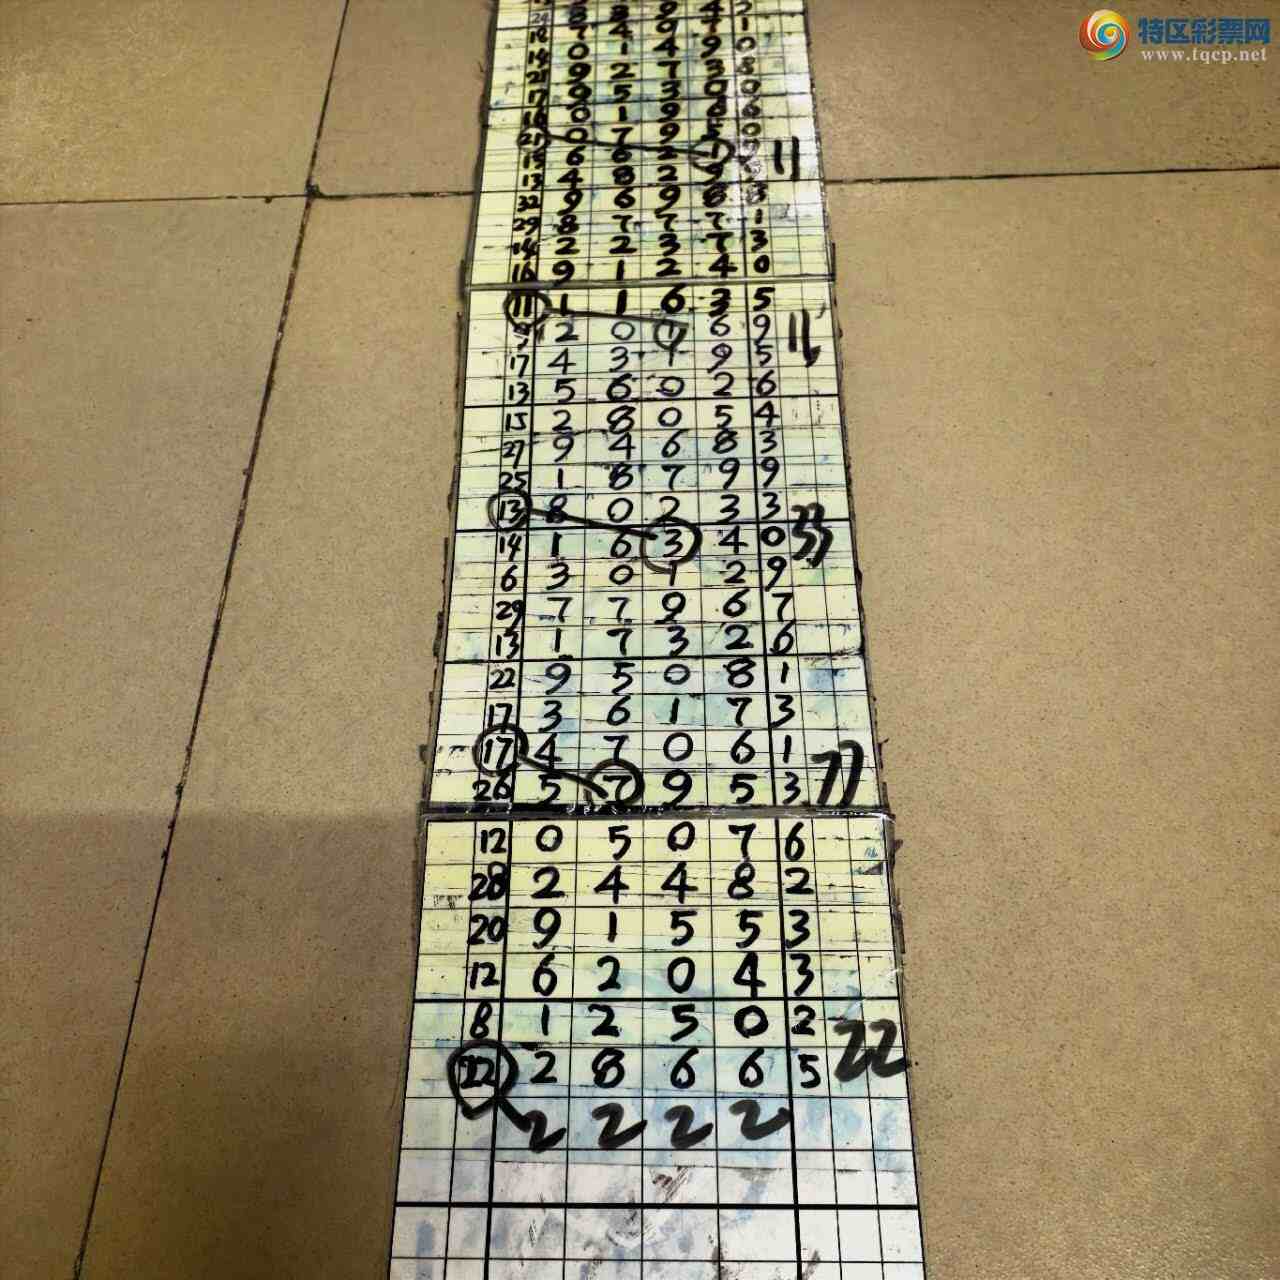 特区彩票网
www.tqcp.net
14 0 1 4 9 0
21 9 2 7 3 8
17 9 5 3 0 0
16 0 1 9 6 6
21 0 7 9 5 0
15 6 6 2 1
11
13 4 8 2 9
32 9 6 9 8 8
29 8 7 7 7 1
14 2 2 3 7 3
16 9 1 2 4 0
11 1 1 6 3 5
9 2 0 1 6 9 11
17 4 3 1 9 5
13 5 6 0 2 6
15 2 8 0 5 4
27 9 4 6 8 3
25 1 8 7 9 9
13 8 0 2 3 3
14 1 6 3 4 0 33
6 3 0 1 2 9
29 7 7 9 6 7
13 1 7 3 2 6
22 9 5 0 8 1
17 3 6 1 7 3
17 4 7 0 6 1
26 5 7 9 5 3 77
12 0 5 0 7 6
28 2 4 4 8 2
20 9 1 5 5 3
12 6 2 0 4 3
8 1 2 5 0 2
22 2 8 6 6 5 22
2 2 2 2